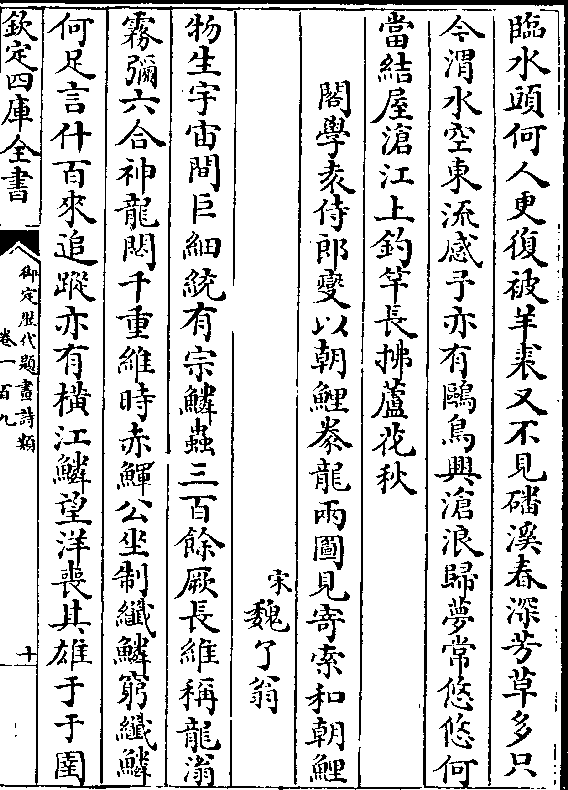 臨水頭何人更復被羊裘又不見磻溪春深芳草多只
今渭水空東流感予亦有鷗鳥興滄浪歸夢常悠悠何
當結屋滄江上釣竿長拂蘆花秋
閣學袁侍郎燮以朝鯉豢龍兩圖見寄索和朝鯉
宋魏了翁
物生宇宙間巨細統有宗鱗蟲三百餘厥長維稱龍滃
霧彌六合神龍閟千重維時赤鯶公坐制纖鱗窮纖鱗
何足言什百來追蹤亦有橫江鱗望洋喪其雄于于圉
欽定四庫全書
御定歷代題畫詩類
卷一百九
十